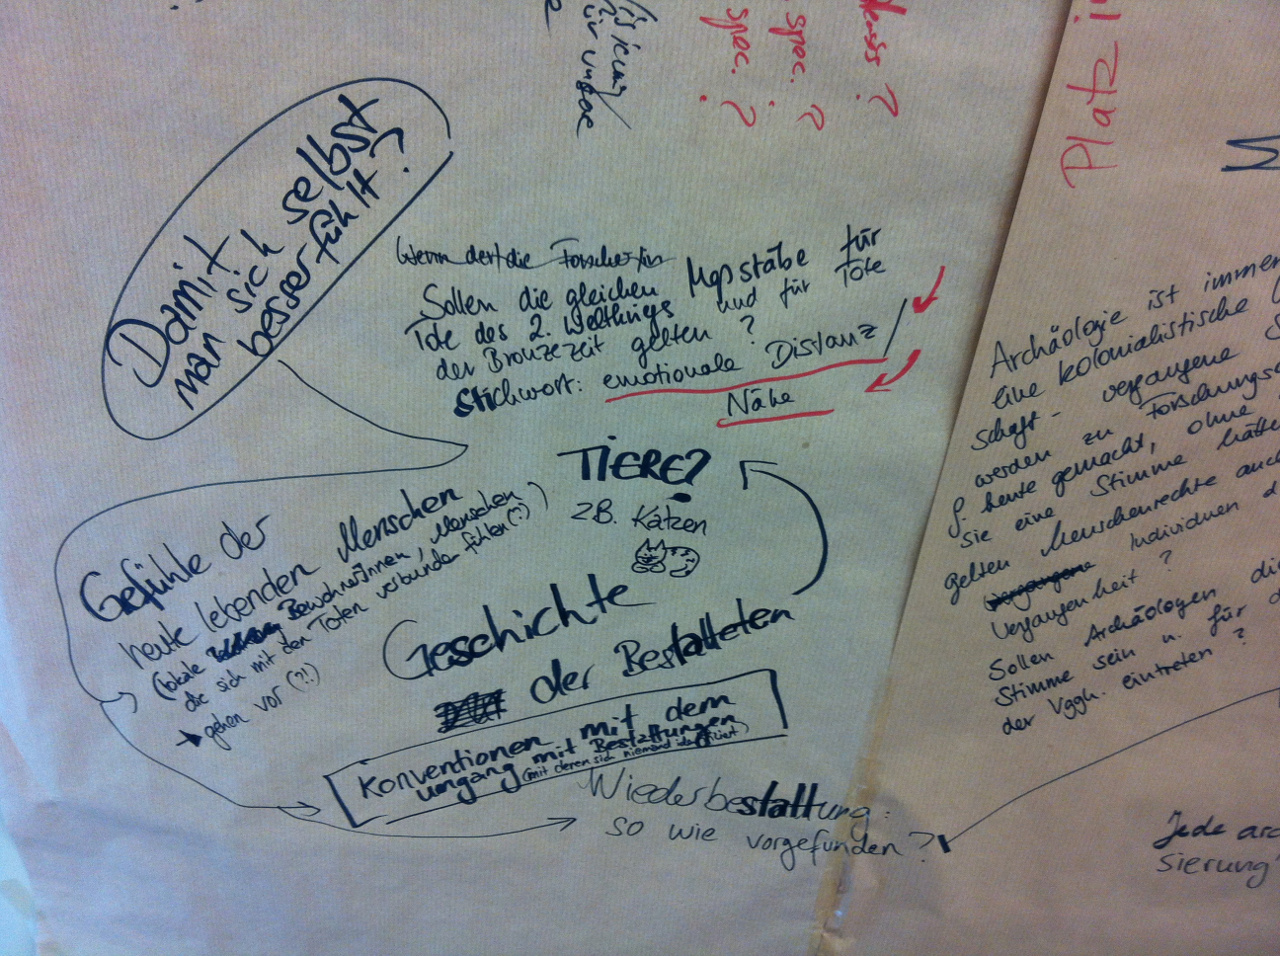 spec. ?
spec. ?
?
Platz
Damit
man sich selbst
besser fühlt?
Wenn der/die Forscher/in
Sollen die gleichen Maßstäbe für
Tote des 2. Weltkriegs und für Tote
der Bronzezeit gelten?
Stichwort: emotionale Distanz /
Nähe
TIERE?
z.B. Katzen
Gefühle der
heute lebenden Menschen
(lokale BewohnerInnen, Menschen
die sich mit den Toten verbunden fühlen (?))
gehen vor (?!)
Geschichte
der Bestatteten
Konventionen mit dem
umgang mit Bestattungen
(mit deren sich niemand identifiziert)
Wiederbestattung:
so wie vorgefunden?
Archäologie ist immer
eine kolonialistische
schaft - vergangene
werden zu Forschungs
f. heute gemacht, ohne
sie eine Stimme hätte
gelten Menschenrechte auch
vergangene Individuen d
Vergangenheit?
Sollen Archäologen die
Stimme sein u. für d
der Vggh. eintreten?
Jede arc
sierung